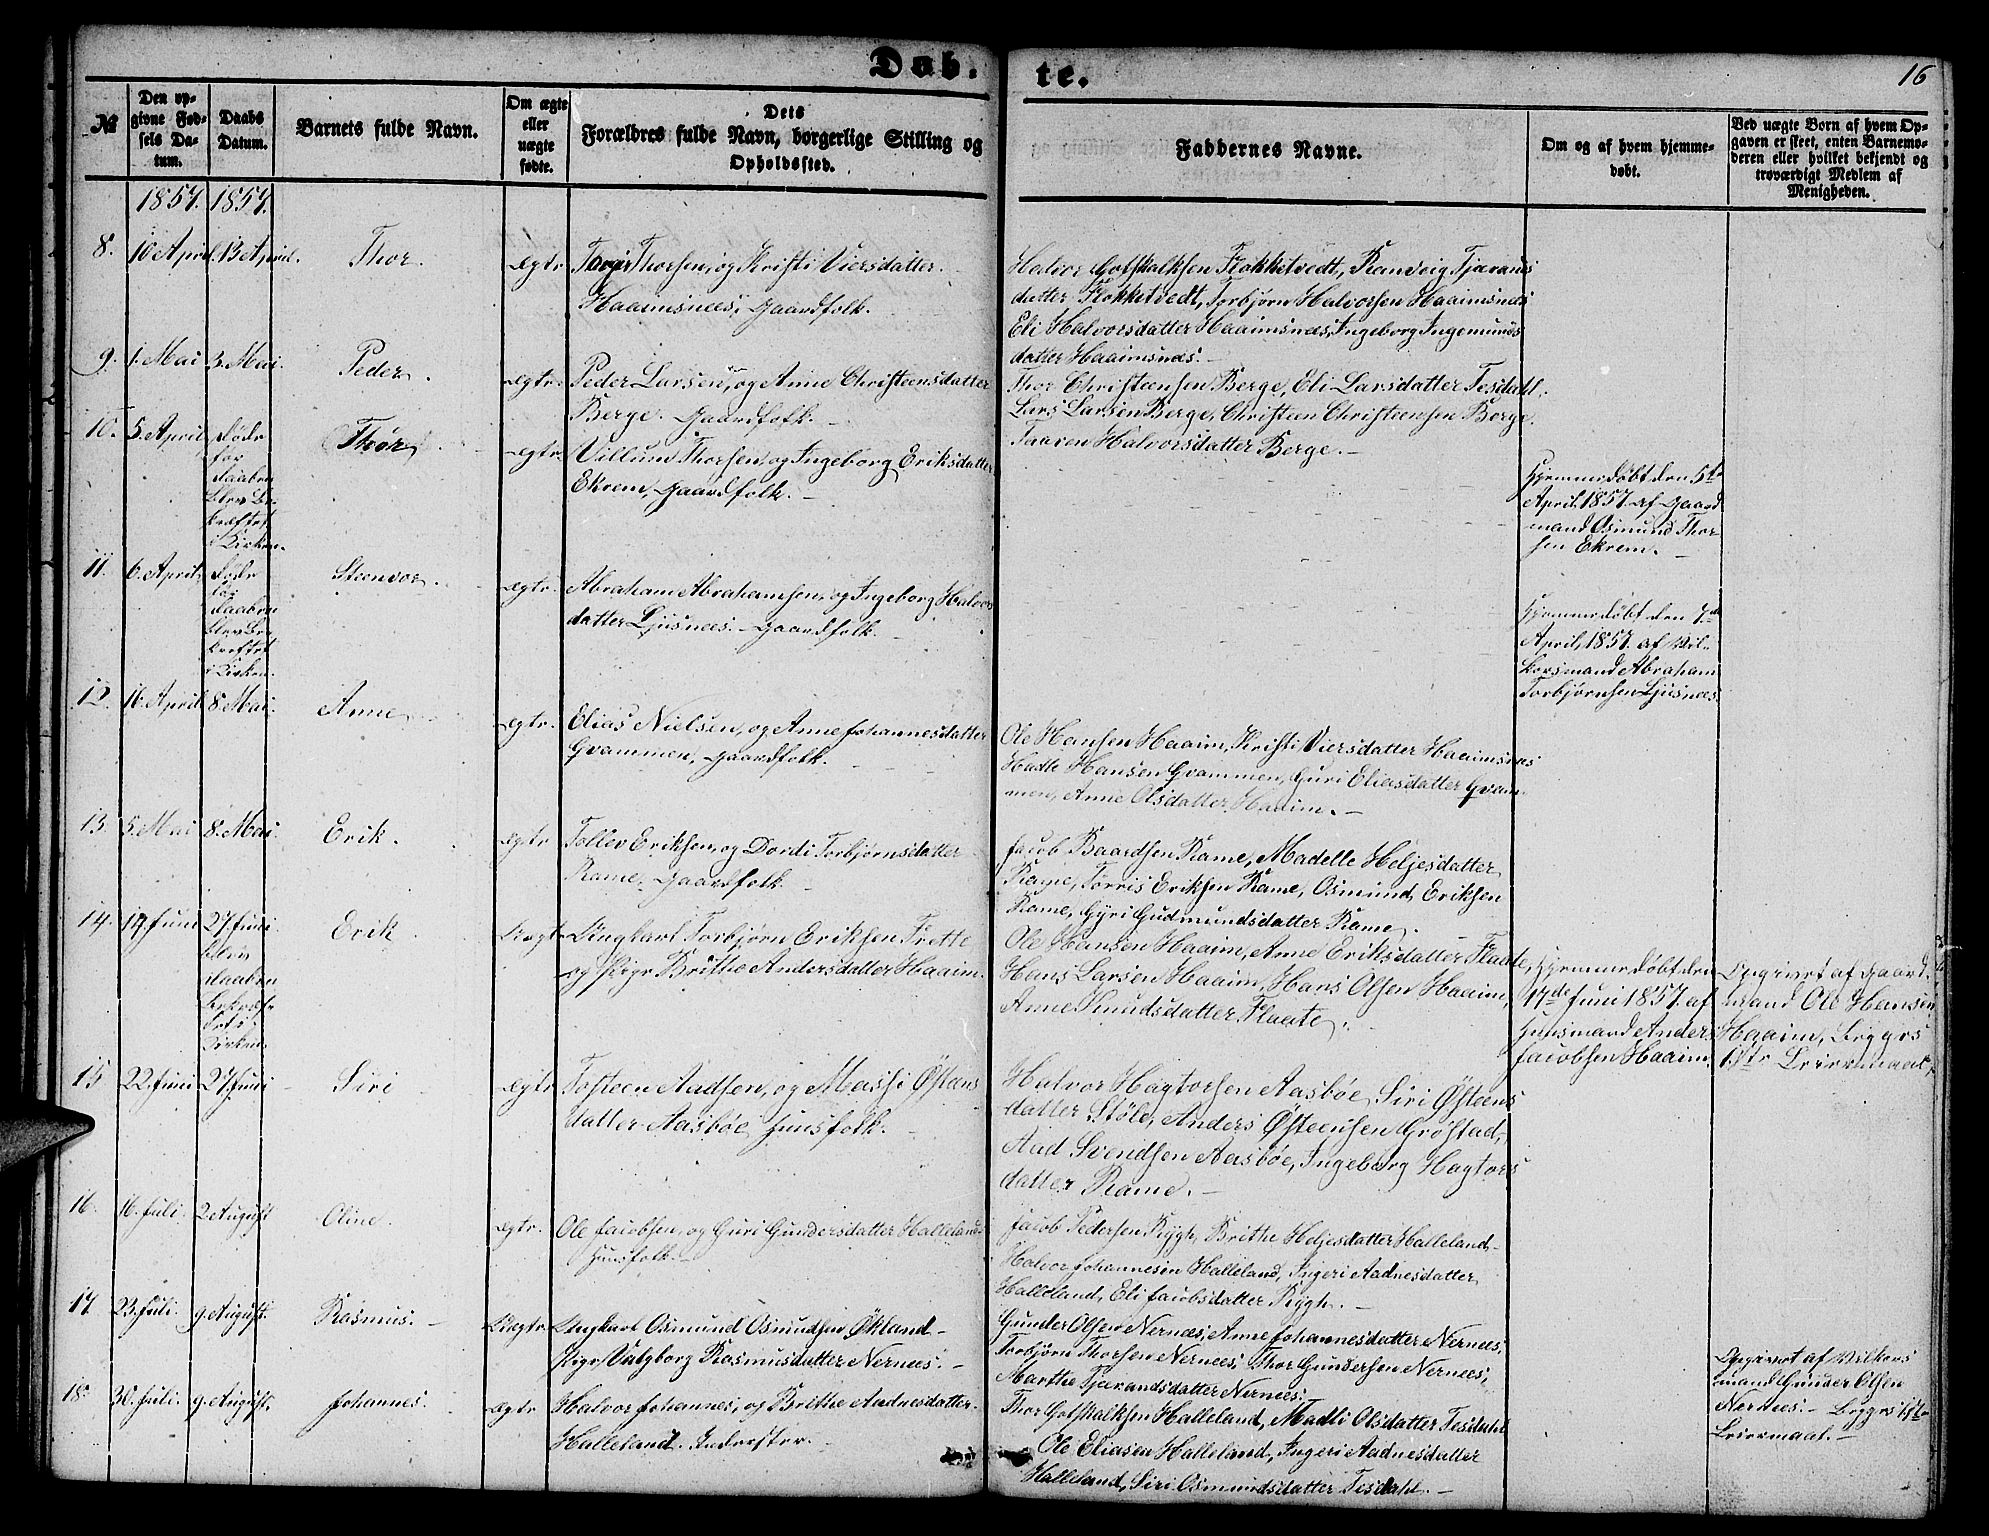 Døb-
te.
16
№
Den op-
givne Fød-
sels Da-
tum.
Daabs
Datum.
Barnets fulde Navn.
Om ægte
eller
uægte
fødte.
Dets
Forældres fulde Navn, borgerlige Stilling og
Opholdssted.
Faddernes Navne.
Om og af hvem hjemme-
døbt.
Ved uægte Børn af hvem Op-
gaven er skeet, enten Barnemo-
deren eller hvilket bekjendt og
troværdigt Medlem af
Menigheden.
1857. 1857.
8. 10 April. 13 April. Thor. Ægte Thorsen, og Kristi Viersdatter
Haaimsnæs, Gaardfolk.
Halvor Gotskalksen Flokketvedt, Ranveig Tjærans
datter Flokketvedt, Torbjørn Halvorsen Haaimsnæs
Eli Halvorsdatter Haaimsnæs, Ingeborg Ingemunds
datter Haaimsnæs.
9. 1. Mai 3. Mai. Peder. Ægte. Peder Larsen, og Anne Christeensdatter
Berge. Gaardfolk.
Thor Christeensen Berge, Eli Larsdatter Tesdahl,
Lars Larsen Berge, Christeen Christeensen Berge,
Taaren Halvorsdatter Berge.
10. 5. April Døde
før
Daaben
blev be-
kræftet
i Kirken.
Thor Ægte Villum Thorsen, og Ingeborg Eriksdatter
Ekrem, Gaardfolk.
Hjemmedøbt den 5te
April 1857 af Gaard
mand Osmund Thor
sen Ekrem.
11. 6. April Døde
før
Daaben
blev be-
kræftet
i Kirken.
Steenvor. Ægte. Abraham Abrahamsen, og Ingeborg Halvors
datter Ljusnæs. Gaardfolk.
Hjemmedøbt den 7de
April 1857 af Vil-
korsmand Abraham
Torbjørnsen Ljusnæs.
12. 16. April 8. Mai. Anne Ægte. Elias Nielsen, og Anne Johannesdatter
Gvammen, Gaardfolk.
Ole Hansen Haaim, Kristi Viersdatter Haaimsnæs
Hadle Hansen Gvammen, Guri Eliasdatter Gvam-
men, Anne Olsdatter Haaim.
13. 5. Mai 8. Mai. Erik. Ægte Tollev Eriksen, og Dordi Torbjørnsdatter
Rame, Gaardfolk.
Jacob Baardsen Rame, Madelle Heljesdatter
Rame, Tørris Eriksen Rame, Osmund Eriksen
Rame, Gyri Gudmundsdatter Rame.
14. 14. Juni 27. Juni
blev
Daaben
bekræf-
tet i
Kirken.
Erik Uægte Ungkarl Torbjørn Eriksen Frette
og Pige Brithe Andersdatter Haaim.
Ole Hansen Haaim, Anne Eriksdatter Flaate,
Hans Larsen Haaim, Hans Olsen Haaim,
Anne Knudsdatter Flaate.
Hjemmedøbt den
17de Juni 1857 af
Huusmand Anders
Jacobsen Haaim.
Opgivet af Gaard-
mand Ole Hansen
Haaim, Begges
1ste Leiermaal.
15 22. Juni 27. Juni Siri Ægte Tosteen Aadsen, og Massi Østeens
datter Aasbøe, Huusfolk.
Halvor Hagtorsen Aasbøe, Siri Østeens
datter Støle, Anders Østeensen Grøstad,
Aad Svendsen Aasbøe, Ingeborg Hagtors
datter Rame.
16. 16. Juli. 2 August Oline. Ægte. Ole Jacobsen, og Guri Gundersdatter Halleland
Huusfolk.
Jacob Pedersen Rygh, Brithe Heljesdatter Halleland
Halvor Johannesen Halleland, Ingeri Aadnesdatter
Halleland, Eli Jacobsdatter Rygh.
17 23. Juli. 9. August. Rasmus. Uægte Ungkarl Osmund Osmudsen Økland
Pige Valgborg Rasmusdatter Nernæs.
Gunder Olsen Nernæs, Anne Johannesdatter Nernæs,
Torbjørn Thorsen Nernæs, Thor Gundersen Nernæs,
Marthe Tjærandsdatter Nernæs.
Opgivet af Vilkors
mand Gunder Olsen
Nernæs. Begges 1ste
Leiermaal.
18. 30. Juli. 9. August. Johannes. Ægte Halvor Johannes, og Brithe Aadnesdatter
Halleland. Inderster.
Thor Gotskalksen Halleland, Madli Olsdatter Tesdahl
Ole Eliasen Halleland, Ingeri Aadnesdatter
Halleland, Siri Osmundsdatter Tesdahl.